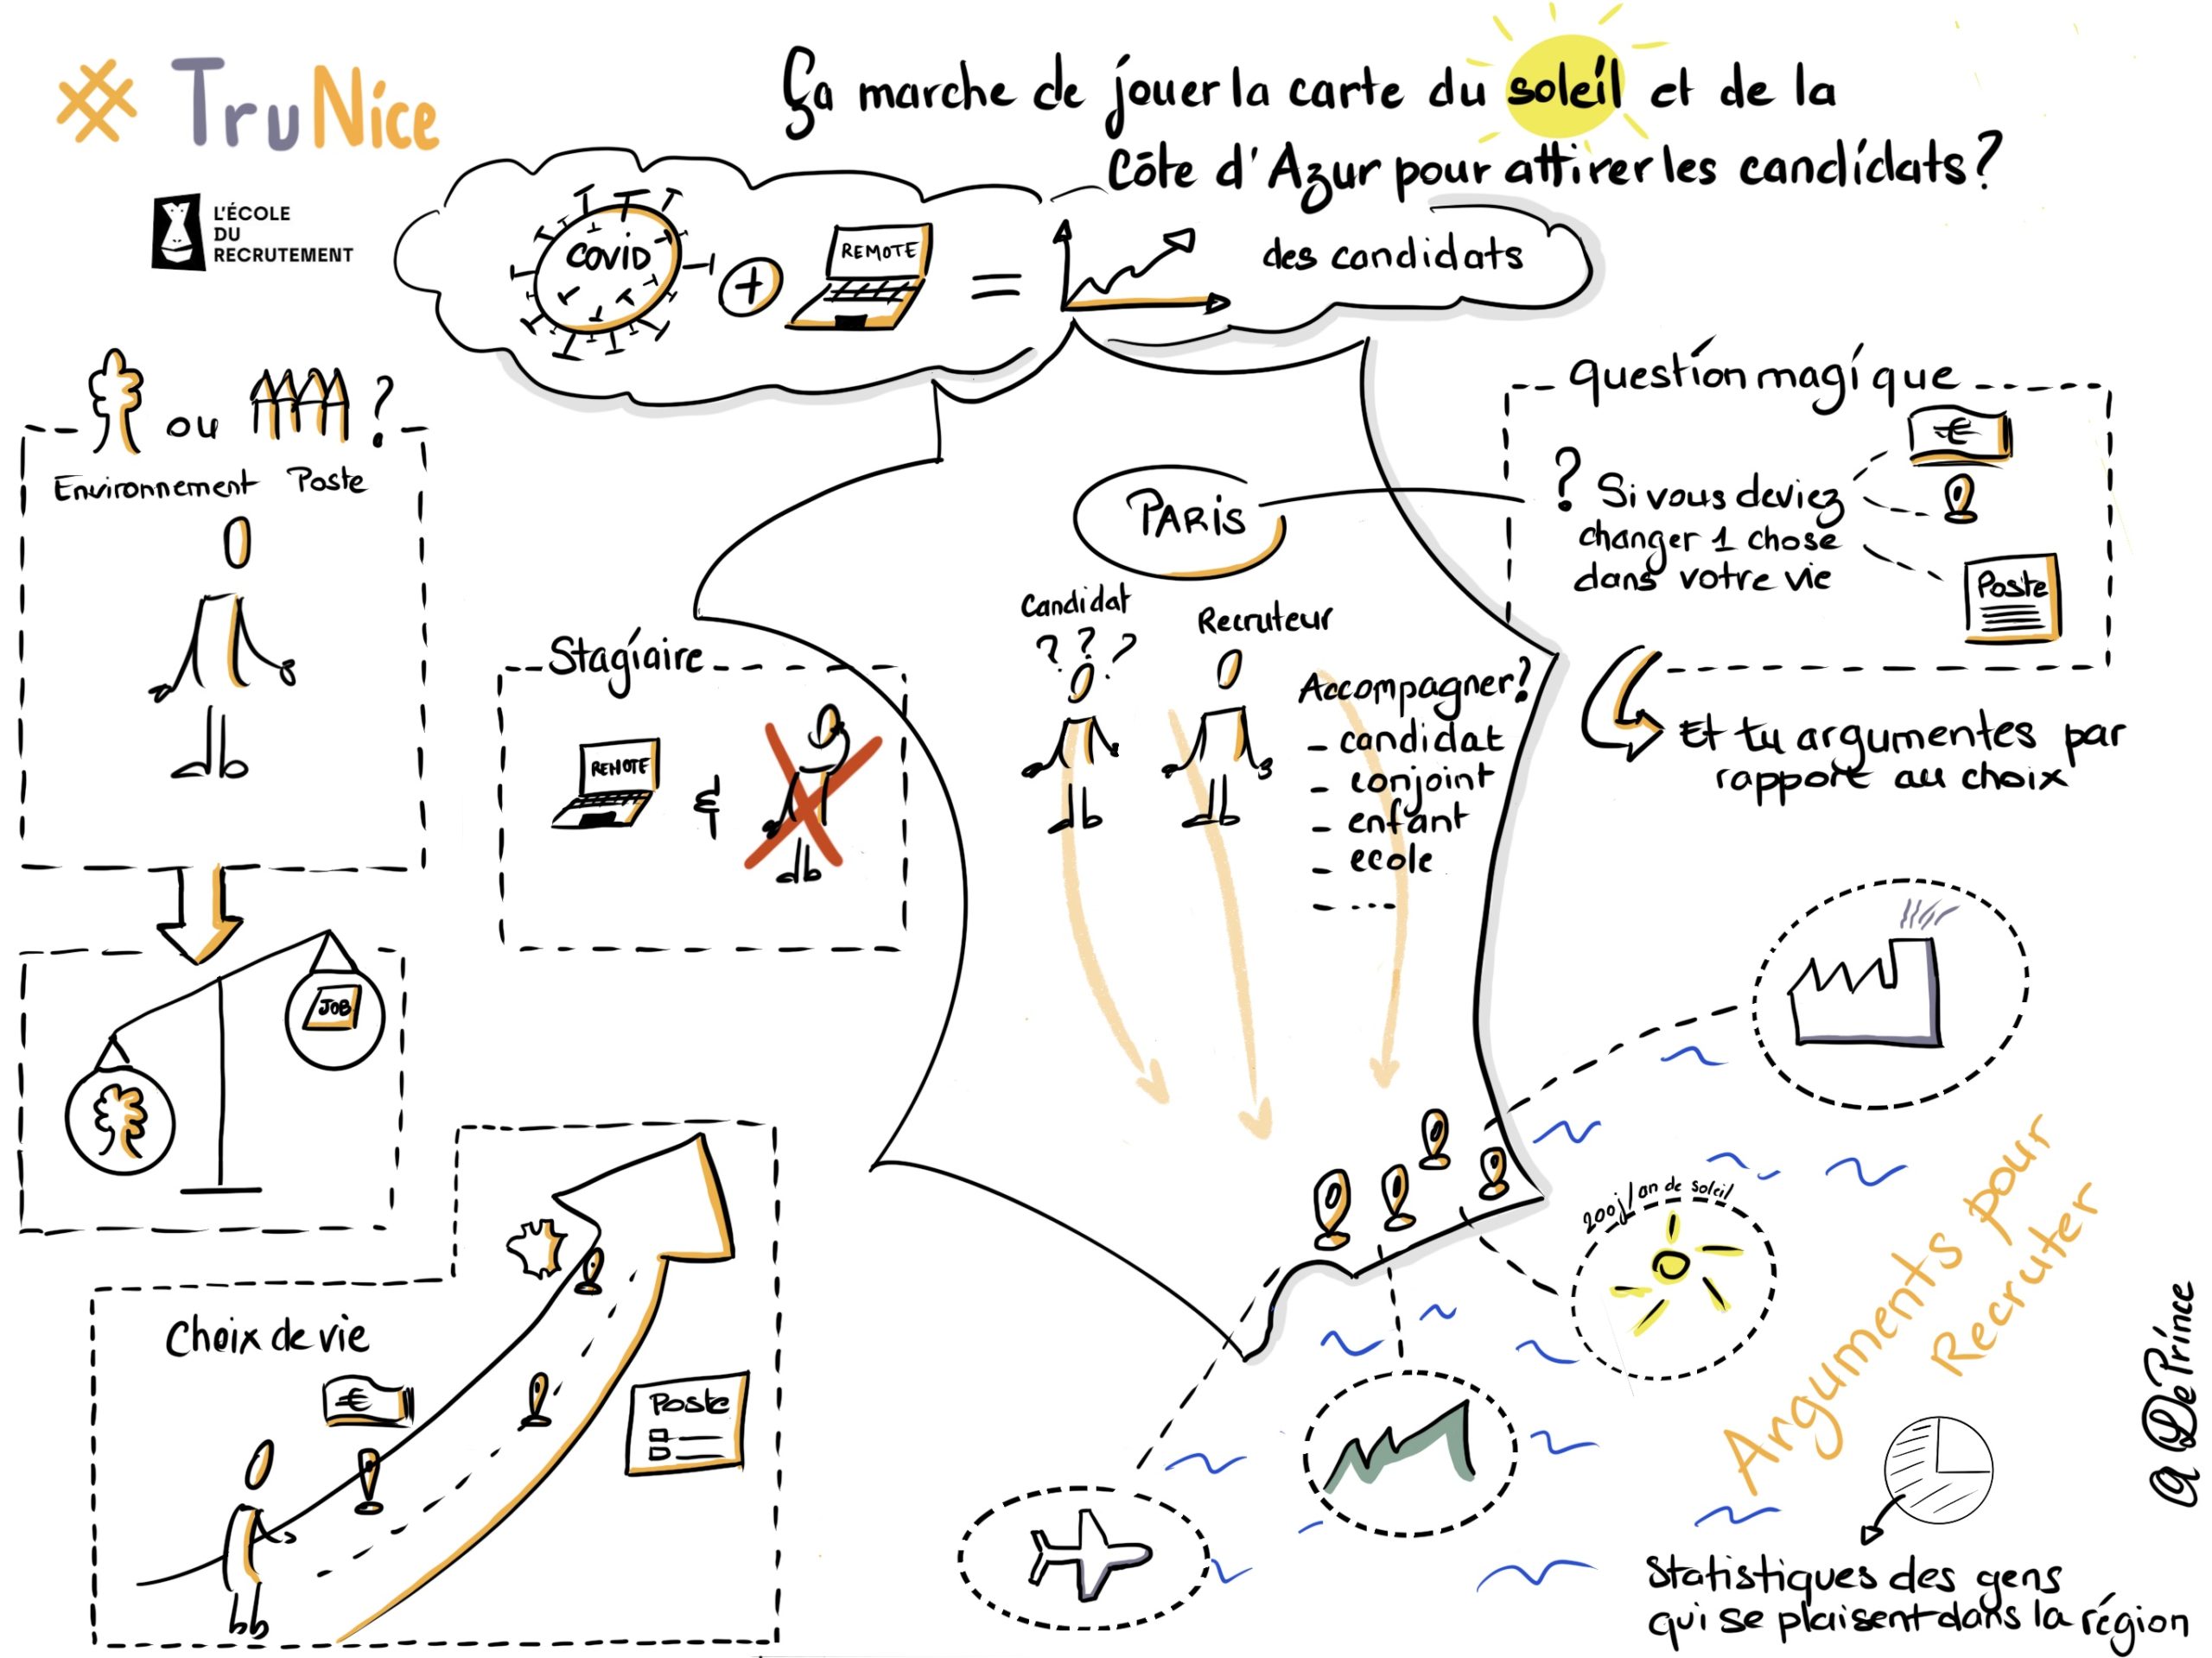 # TruNice
L'ÉCOLE
DU
RECRUTEMENT
Ça marche de jouer la carte du soleil et de la
Côte d'Azur pour attirer les candidats?
COVID
+
REMOTE
=
des candidats
ou
?
Environnement Poste
JOB
Choix de vie
€
Poste
Stagiaire
REMOTE
&
PARIS
Candidat
? ? ?
Recruteur
Accompagner?
- candidat
- conjoint
- enfant
- ecole
- ----
question magique
€
? Si vous deviez
changer 1 chose
dans votre vie
Poste
Et tu argumentes par
rapport au choix
200j/an de soleil
Arguments pour
Recruter
Statistiques des gens
qui se plaisent dans la région
@DePrince